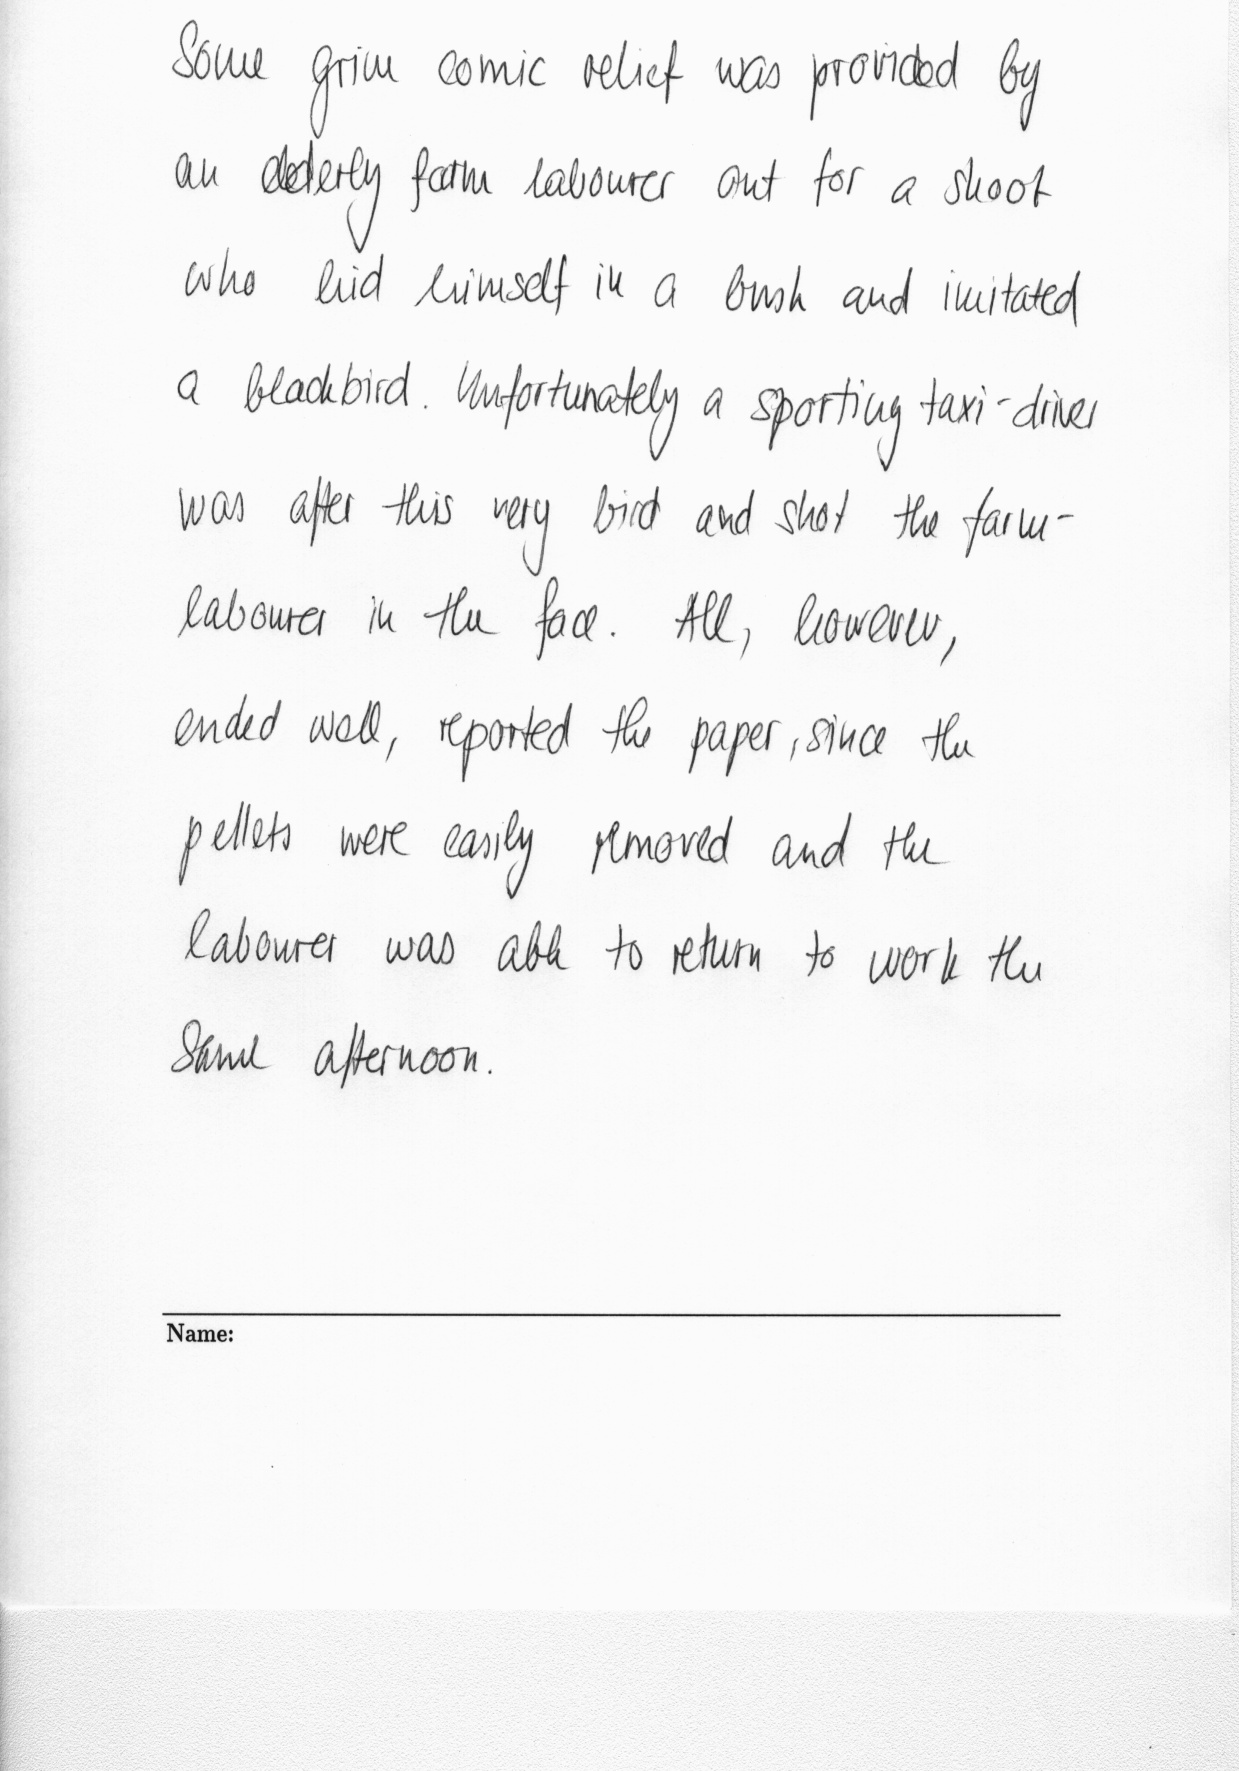 Some grim comic relief was provided by
an elderly farm labourer out for a shoot
who hid himself in a bush and imitated
a blackbird. Unfortunately a sporting taxi-driver
was after this very bird and shot the farm-
labourer in the face. All, however,
ended well, reported the paper, since the
pellets were easily removed and the
labourer was able to return to work the
same afternoon.
Name: